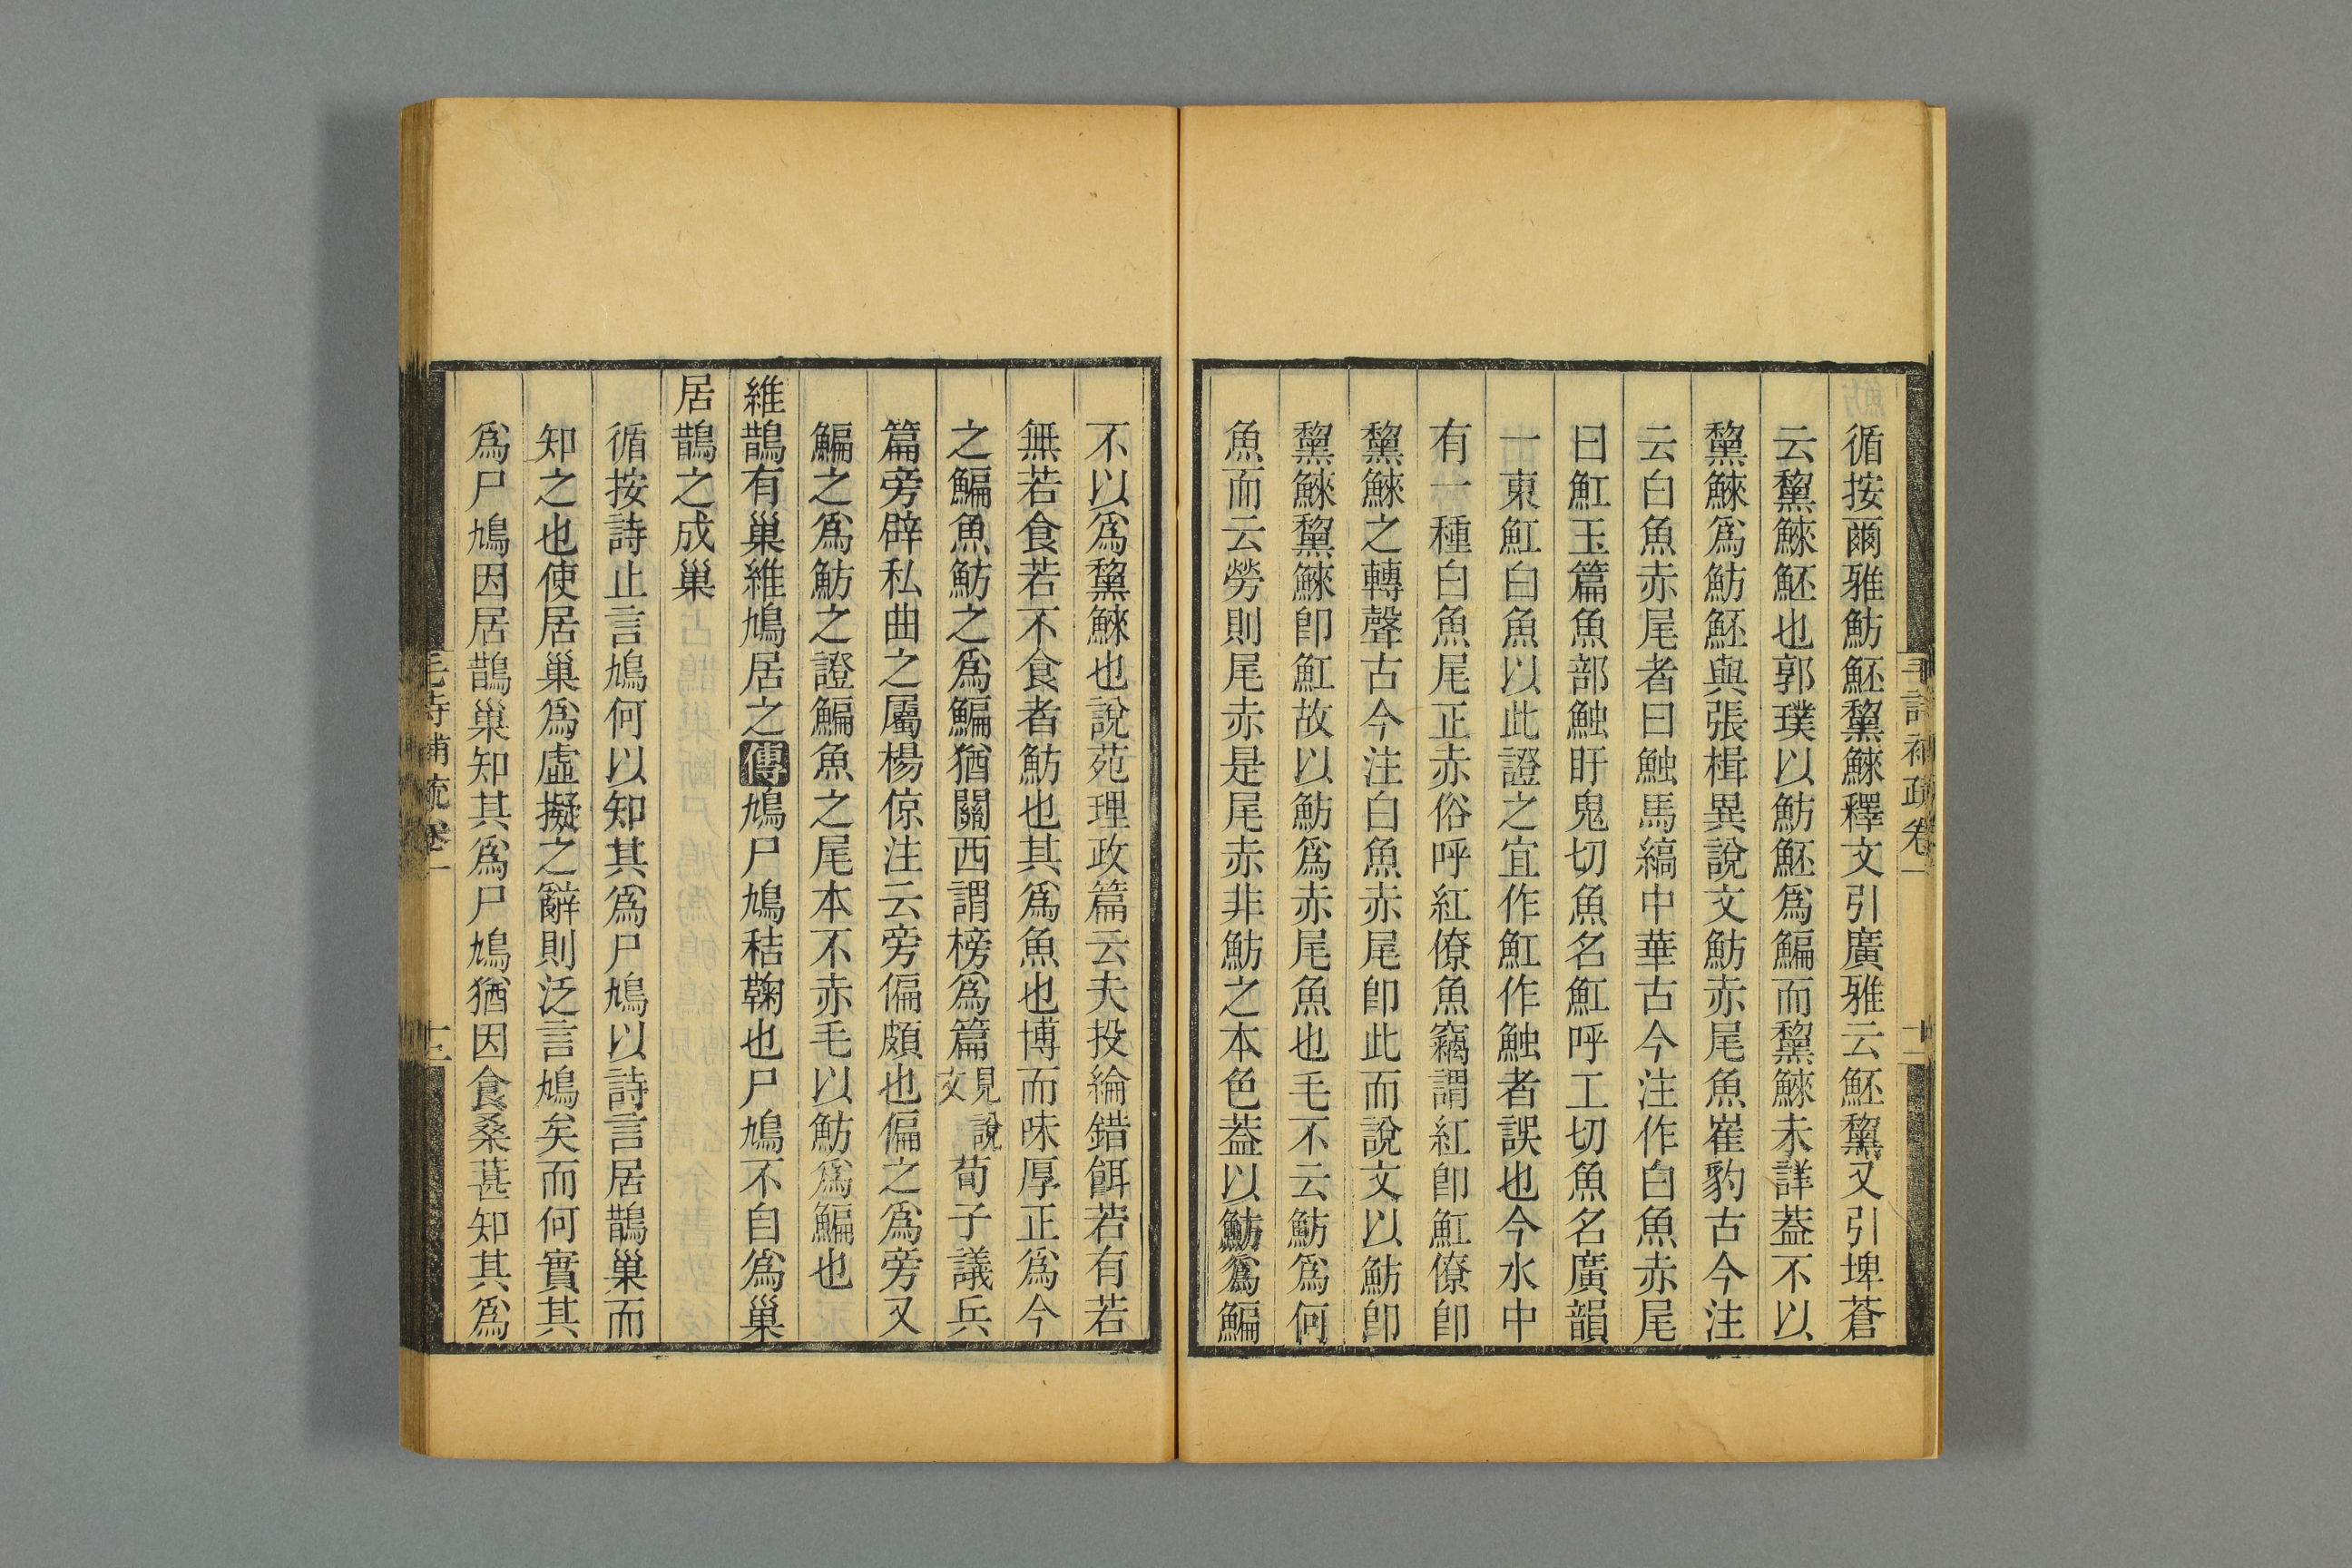 毛詩補疏卷一
十一
循按爾雅魴魾鯬鯠釋文引廣雅云魾鯬又引埤蒼
云鯬鯠魾也郭璞以魴魾爲鯿而鯬鯠未詳葢不以
鯬鯠爲魴魾與張楫異說文魴赤尾魚崔豹古今注
云白魚赤尾者曰䱉馬縞中華古今注作白魚赤尾
曰魟玉篇魚部䱉盱鬼切魚名魟呼工切魚名廣韻
一東魟白魚以此證之宜作魟作䱉者誤也今水中
有一種白魚尾正赤俗呼紅僚魚竊謂紅卽魟僚卽
鯬鯠之轉聲古今注白魚赤尾卽此而說文以魴卽
鯬鯠鯬鯠卽魟故以魴爲赤尾魚也毛不云魴爲何
魚而云勞則尾赤是尾赤非魴之本色葢以魴爲鯿
不以爲鯬鯠也說苑理政篇云夫投綸錯餌若有若
無若食若不食者魴也其爲魚也博而味厚正爲今
之鯿魚魴之爲鯿猶關西謂榜爲篇見說文荀子議兵
篇旁辟私曲之屬楊倞注云旁偏頗也偏之爲旁又
鯿之爲魴之證鯿魚之尾本不赤毛以魴爲鯿也
維鵲有巢維鳩居之傳鳩尸鳩秸鞠也尸鳩不自爲巢
居鵲之成巢
循按詩止言鳩何以知其爲尸鳩以詩言居鵲巢而
知之也使居巢爲虛擬之辭則泛言鳩矣而何實其
爲尸鳩因居鵲巢知其爲尸鳩猶因食桑葚知其爲
毛詩補疏卷一
十二